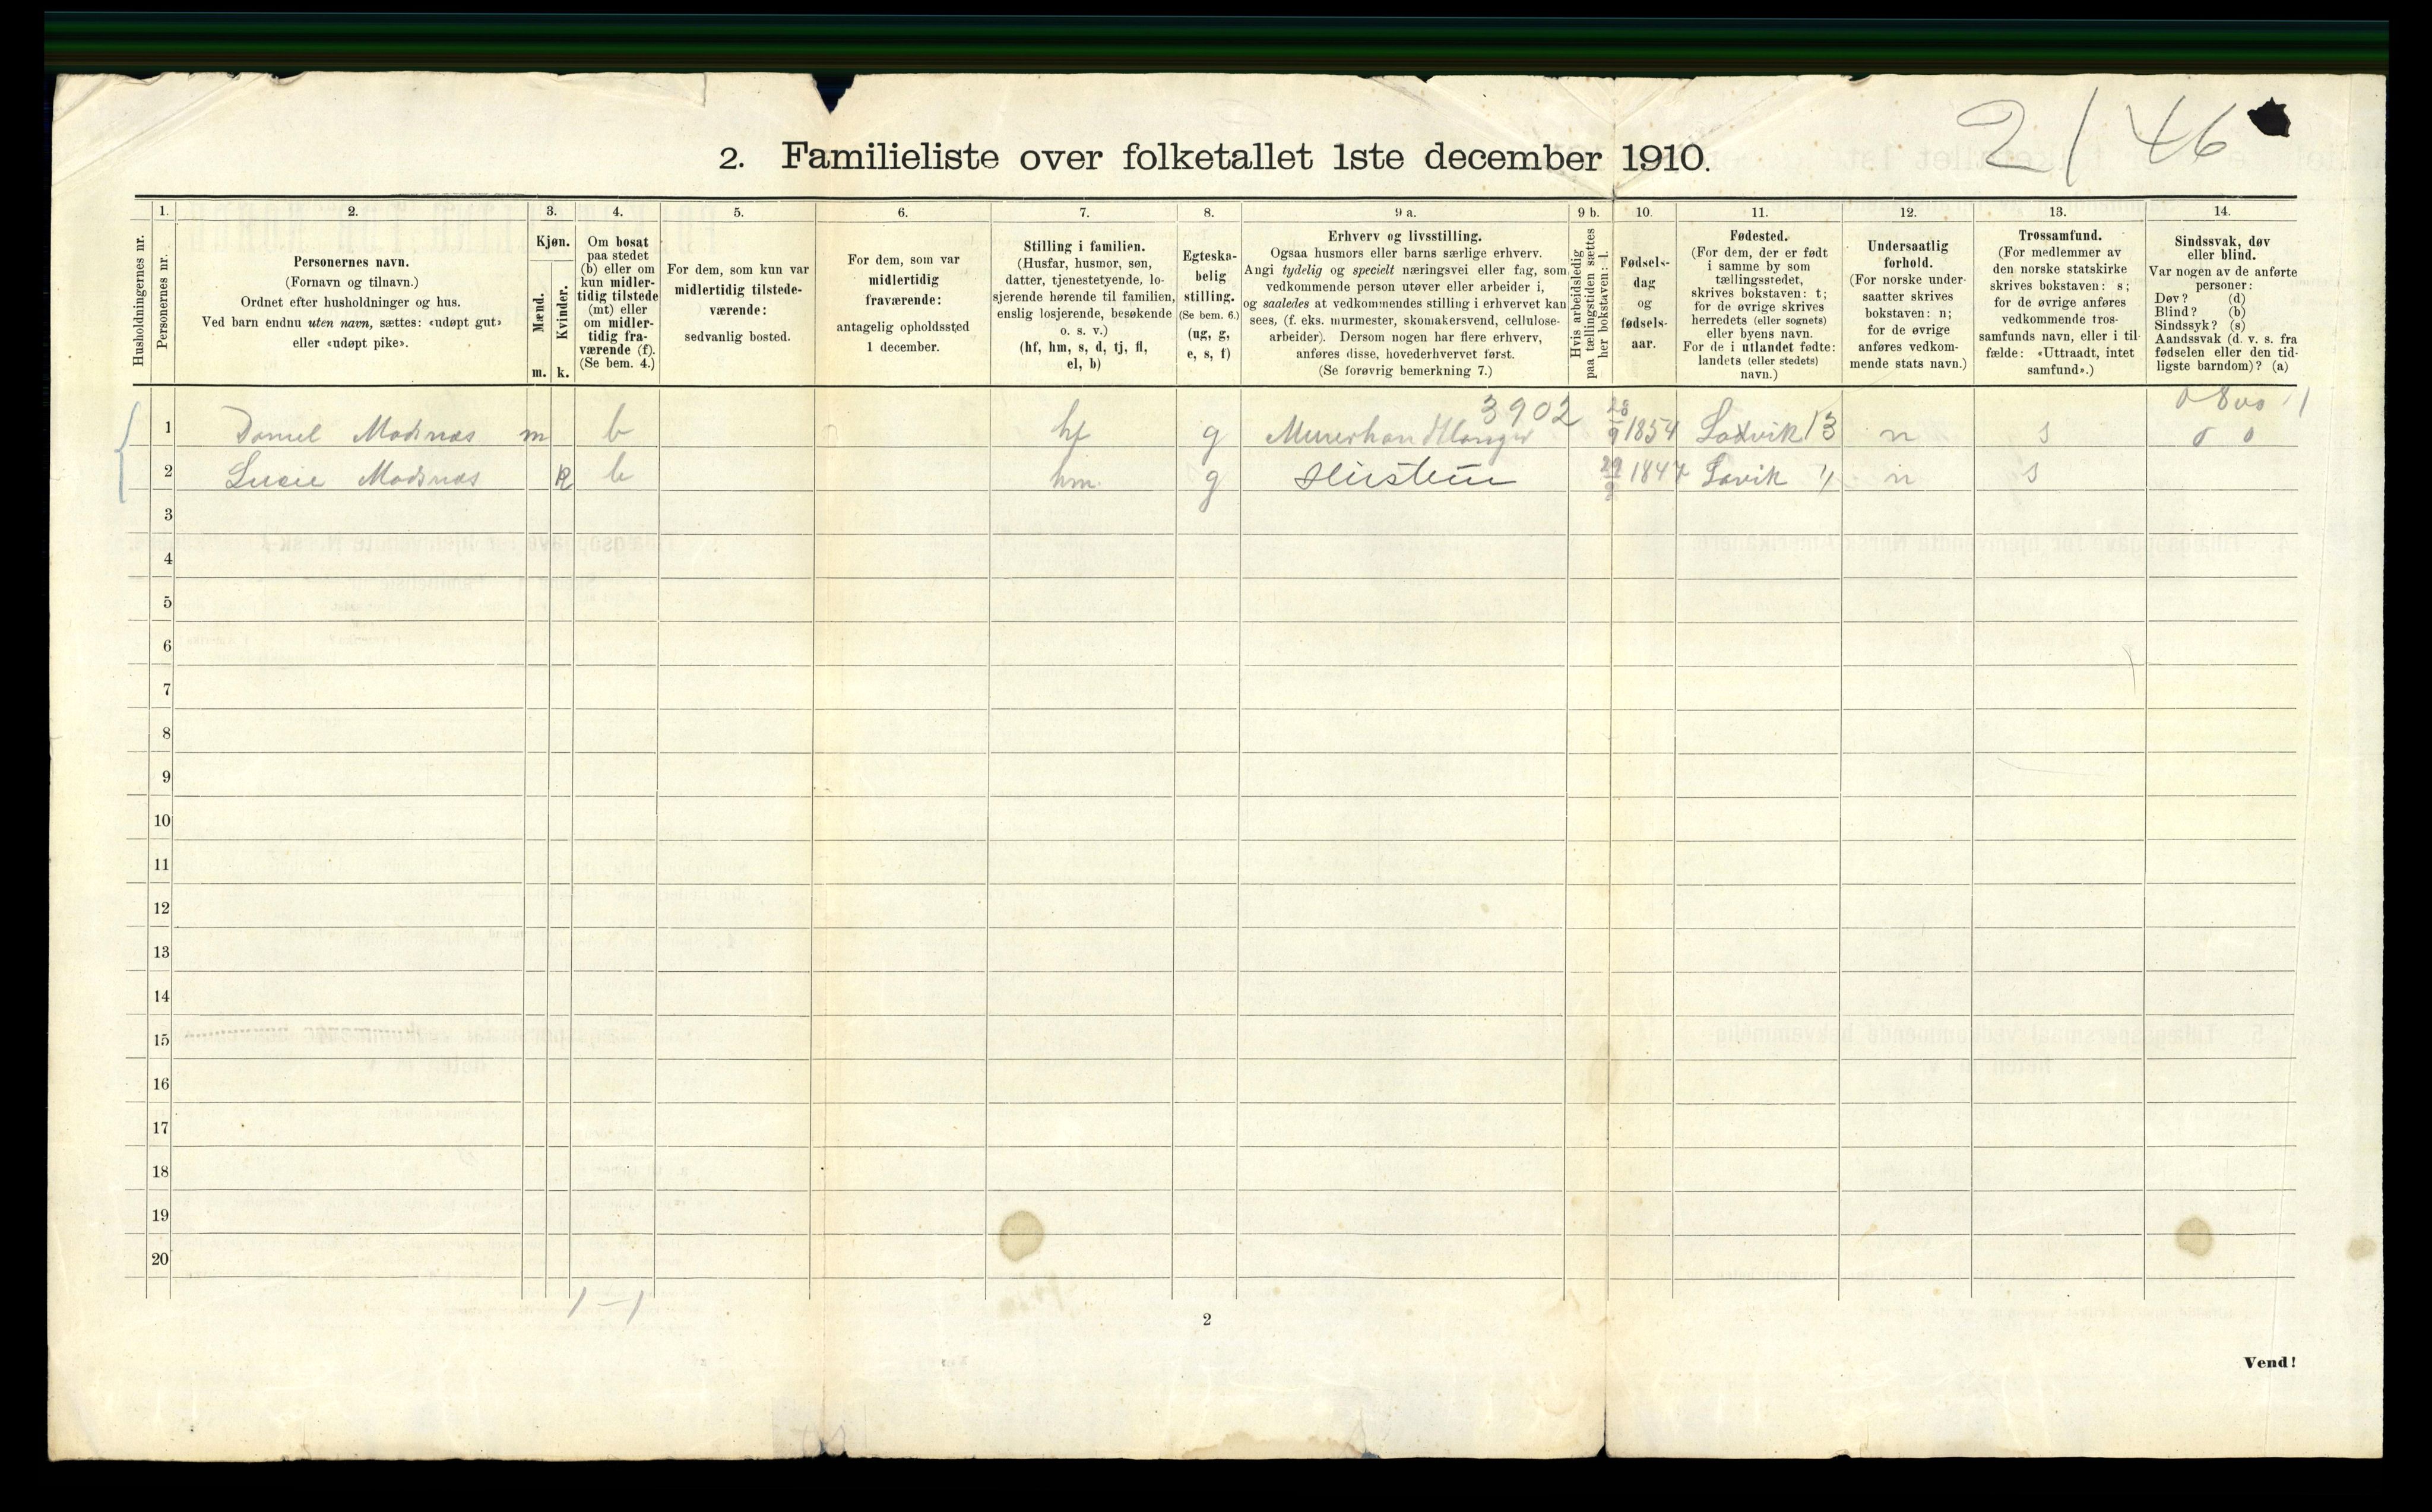 2 / 46
2. Familieliste over folketallet 1ste december 1910.
1. 2. 3. 4. 5. 6. 7. 8. 9 a. 9 b. 10. 11. 12. 13. 14.
Husholdningernes nr.
Personernes nr.
Personernes navn.
(Fornavn og tilnavn.)
Ordnet efter husholdninger og hus.
Ved barn endnu uten navn, sættes: «udøpt gut»
eller «udøpt pike».
Kjøn.
Mænd.
Kvinder.
m. k.
Om bosat
paa stedet
(b) eller om
kun midler-
tidig tilstede
(mt) eller
om midler-
tidig fra-
værende (f).
(Se bem. 4.)
For dem, som kun var
midlertidig tilstede-
værende:
sedvanlig bosted.
For dem, som var
midlertidig
fraværende:
antagelig opholdssted
1 december.
Stilling i familien.
(Husfar, husmor, søn,
datter, tjenestetyende, lo-
sjerende hørende til familien,
enslig losjerende, besøkende
o. s. v.)
(hf, hm, s, d, tj, fl,
el, b)
Egteska-
belig
stilling.
(Se bem. 6.)
(ug, g,
e, s, f)
Erhverv og livsstilling.
Ogsaa husmors eller barns særlige erhverv.
Angi tydelig og specielt næringsvei eller fag, som
vedkommende person utøver eller arbeider i,
og saaledes at vedkommendes stilling i erhvervet kan
sees, (f. eks. murmester, skomakersvend, cellulose-
arbeider). Dersom nogen har flere erhverv,
anføres disse, hovederhvervet først.
(Se forøvrig bemerkning 7.)
Hvis arbeidsledig
paa tællingstiden sættes
her bokstaven: l.
Fødsels-
dag
og
fødsels-
aar.
Fødested.
(For dem, der er født
i samme by som
tællingsstedet,
skrives bokstaven: t;
for de øvrige skrives
herredets (eller sognets)
eller byens navn.
For de i utlandet fødte:
landets (eller stedets)
navn.)
Undersaatlig
forhold.
(For norske under-
saatter skrives
bokstaven: n;
for de øvrige
anføres vedkom-
mende stats navn.)
Trossamfund.
(For medlemmer av
den norske statskirke
skrives bokstaven: s;
for de øvrige anføres
vedkommende tros-
samfunds navn, eller i til-
fælde: «Uttraadt, intet
samfund».)
Sindssvak, døv
eller blind.
Var nogen av de anførte
personer:
Døv? (d)
Blind? (b)
Sindssyk? (s)
Aandssvak (d. v. s. fra
fødselen eller den tid-
ligste barndom)? (a)
3902
1 Daniel Madsnas m b hf g Murerhandlanger 28/9 1854 Ladvik 13 n s 0 0
2 Lucie Madsnas k b hm g 1847 Lavik n s
3
4
5
6
7
8
9
10
11
12
13
14
15
16
17
18
19
20
1 - 1
2
Vend!